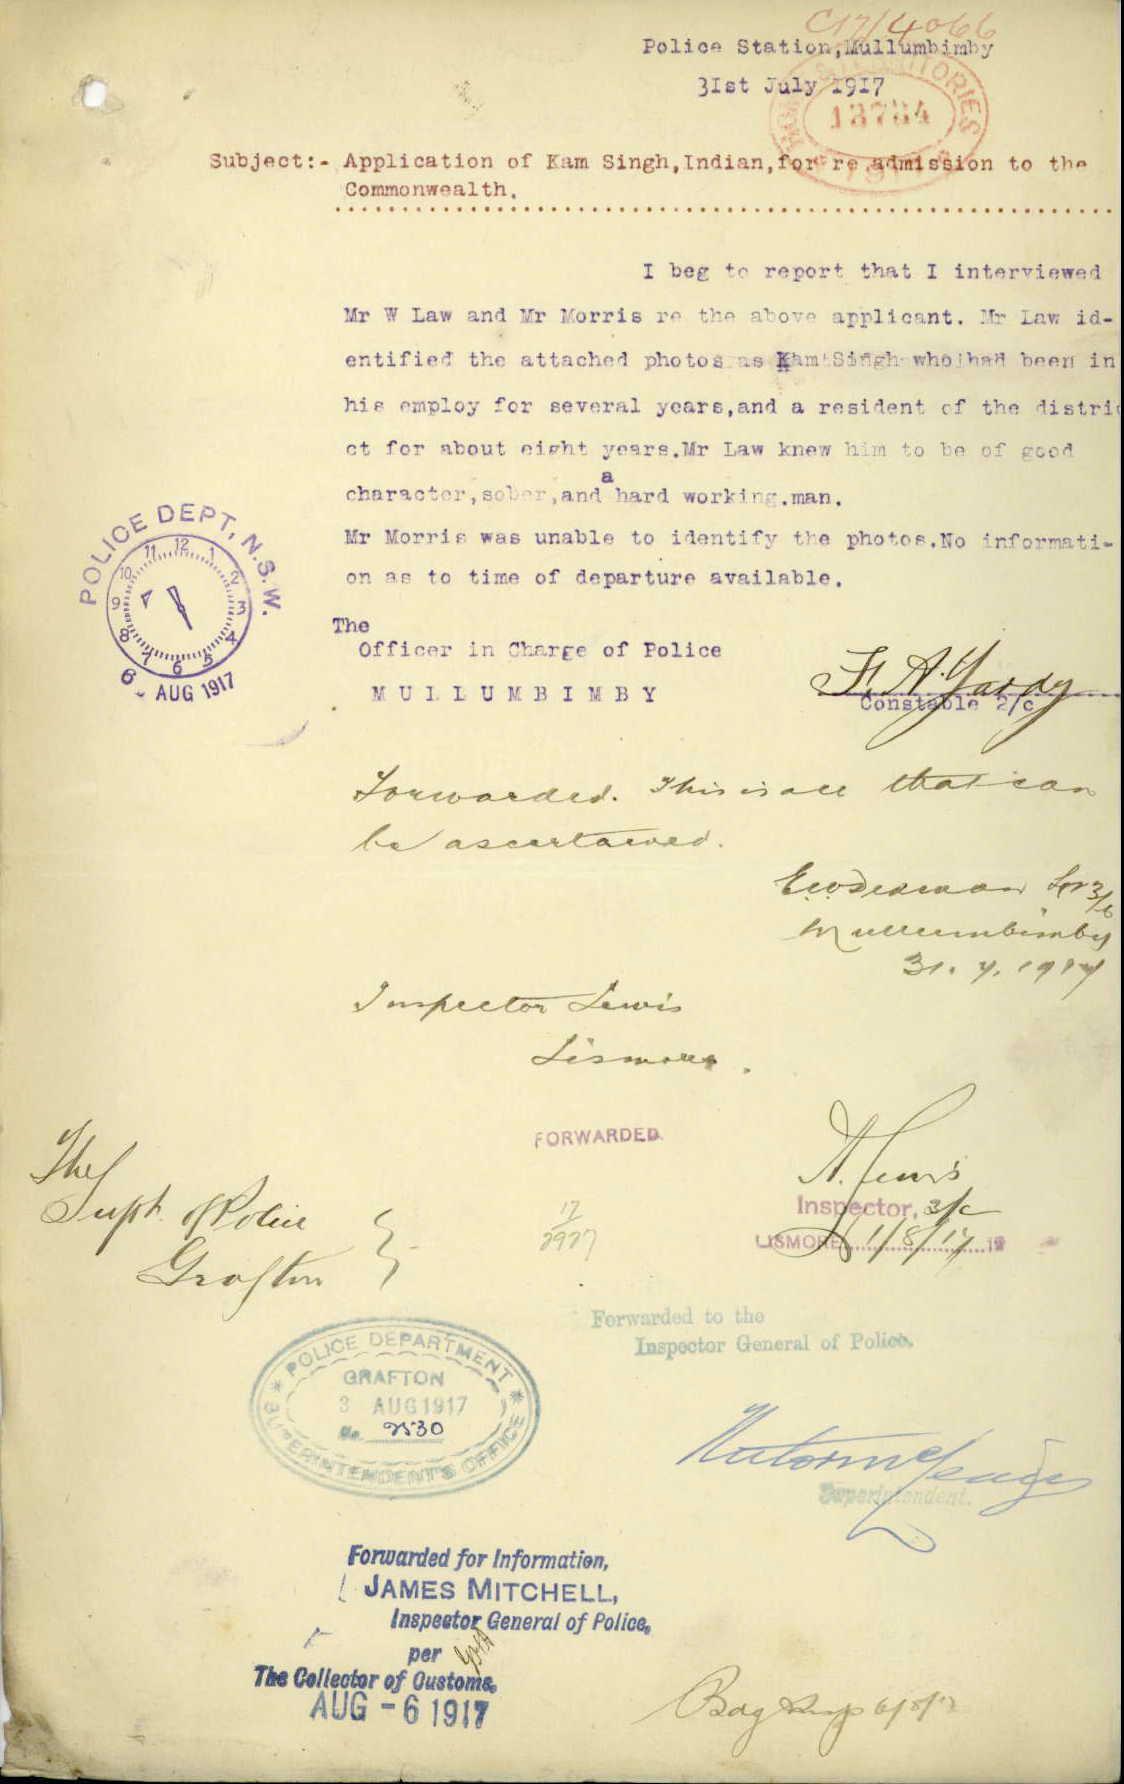 C17/4066
Police Station,Mullumbimby
31st July 1917
TERRITORIES
13784
Subject:- Application of Kam Singh,Indian,for re admission to the
Commonwealth.
I beg to report that I interviewed
Mr W Law and Mr Morris re the above applicant. Mr Law id-
entified the attached photos as Kam Singh who had been in
his employ for several years,and a resident of the distri
ct for about eight years.Mr Law knew him to be of good
character,sober,and a hard working.man.
Mr Morris was unable to identify the photos.No informati-
on as to time of departure available.
POLICE DEPT, N.S.W.
12 1 2 3 4 5 6 7 8 9 10 11
6 - AUG 1917
The
Officer in Charge of Police
MULLUMBIMBY
Constable 2/c
Forwarded. This is all that can
be ascertained.
Mullumbimby
31.7.1917
Inspector Lewis
Lismore.
FORWARDED
The
Supt. of Police
Grafton
A. Lewis
Inspector, 3/c
LISMORE 1/8/17 19
Forwarded to the
Inspector General of Police.
POLICE DEPARTMENT
GRAFTON
3 AUG 1917
No. 2530
SUPERINTENDENT'S OFFICE
Superintendent.
Forwarded for Information,
JAMES MITCHELL,
Inspector General of Police,
per
The Collector of Customs.
AUG - 6 1917